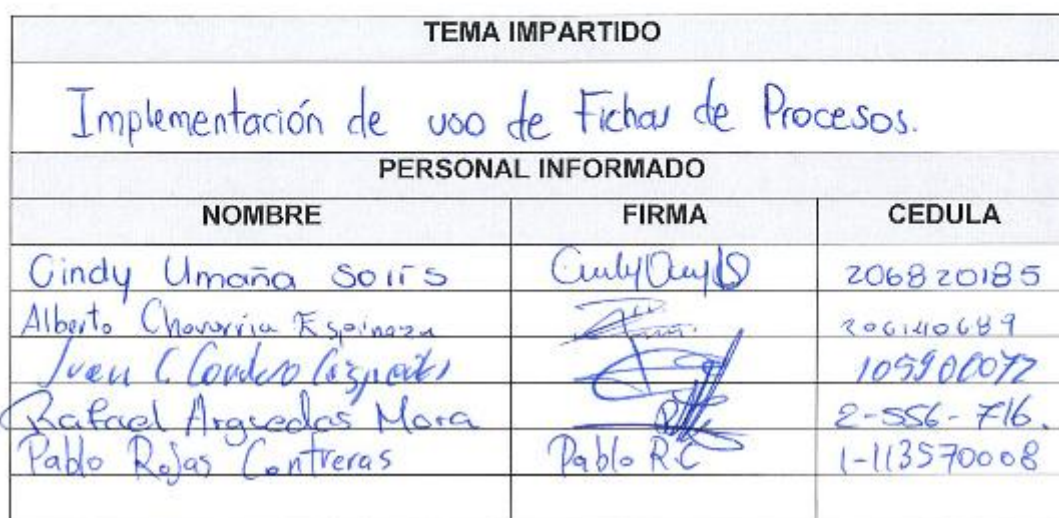 TEMA IMPARTIDO
Implementación de uso de Fichas de Procesos.
PERSONAL INFORMADO
NOMBRE FIRMA CEDULA
Cindy Umaña Solís 206820185
Alberto Chavarria Espinoza 206140689
Juan C. Cordero 105900072
Rafael Arguedas Mora 2-556-716.
Pablo Rojas Contreras Pablo RC 1-113570008